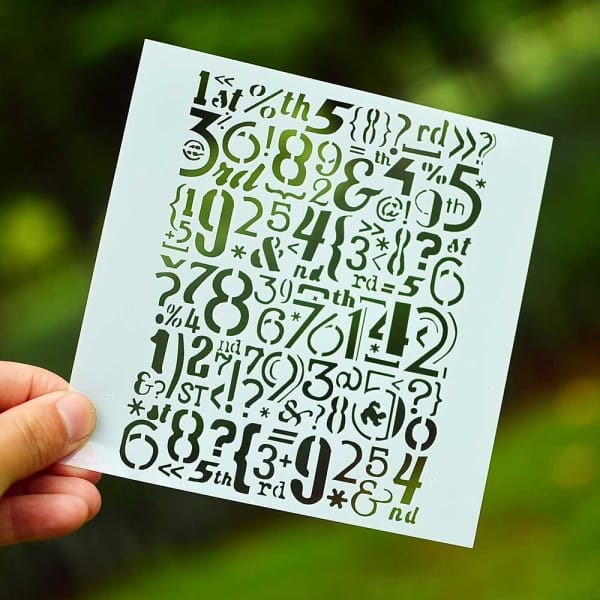 1st « % th 5 { { 8 } ? rd » ?
3 6 ! 8 9 = th 4 % 5 *
@ rd ~ 2 & @ ! 9th
{ 1 9 2 5 < 4 { » * 8 ? st
+5 * & < nd rd = 5 6
? 7 8 39 th 1 4 2
% 4 6 * 7 6
1 ) 2 nd ! 7 9 3 @ 5 < ?
& ? ST < ! ? * & ? 8 & } 0
* st
6 8 ? { = 3 + 9 2 5 4
« 5th rd * & nd